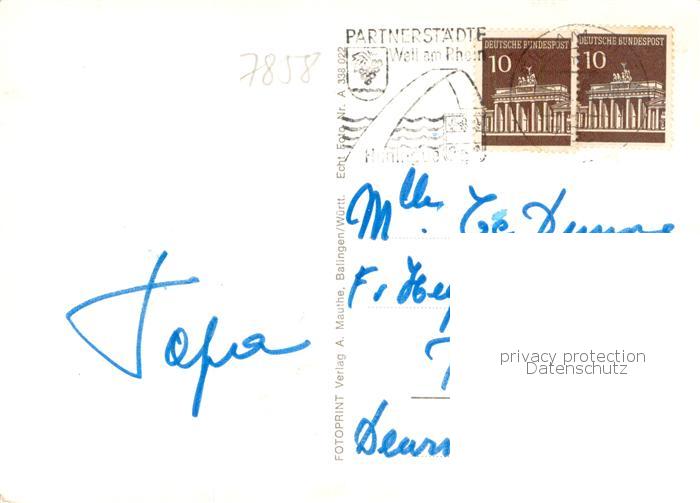 7858
Papa
FOTOPRINT Verlag A. Mauthe, Balingen/Württ. Echt Foto Nr. A 338 022
PARTNERSTÄDTE
Weil am Rhein
DEUTSCHE BUNDESPOST
10
DEUTSCHE BUNDESPOST
10
Mlle.
F.
privacy protection
Datenschutz